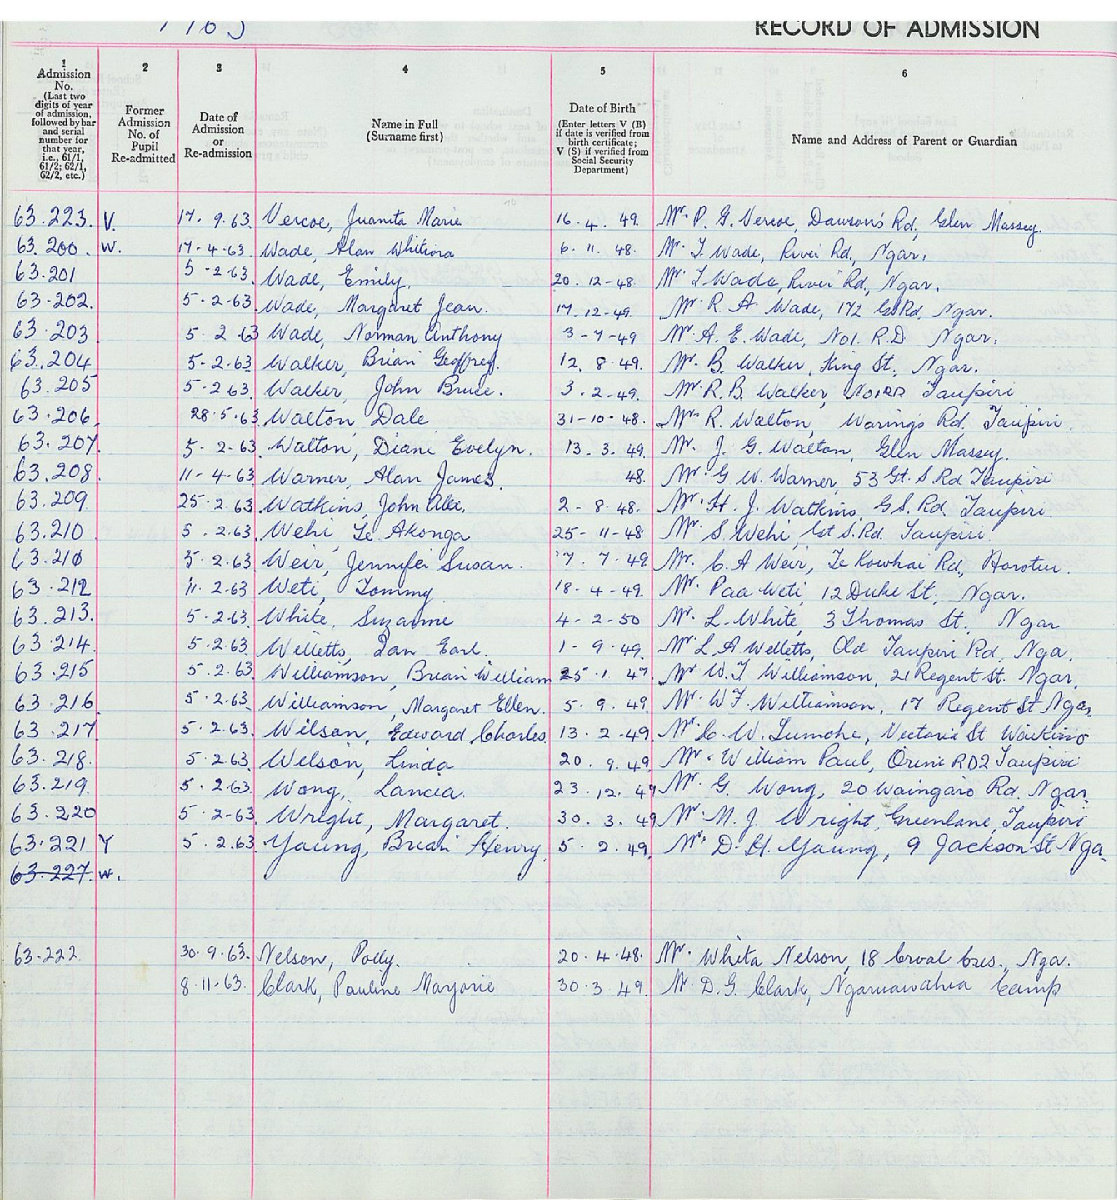 1963
RECORD OF ADMISSION
1 2 3 4 5 6
Admission No. (Last two digits of year of admission, followed by bar and serial number for that year, i.e., 61/1, 61/2; 62/1, 62/2, etc.) Former Admission No. of Pupil Re-admitted Date of Admission or Re-admission Name in Full (Surname first) Date of Birth (Enter letters V (B) if date is verified from birth certificate; V (S) if verified from Social Security Department.) Name and Address of Parent or Guardian
63.223. V. 17. 9. 63 Vercoe, Juanita Marie 16. 4. 49. Mr. P. G. Vercoe, Dawson's Rd, Glen Massey.
63.200. W. 17-4-63. Wade, Alan Whitiora 6. 11. 48. Mr. T Wade, River Rd, Ngar.
63.201 5-2-63. Wade, Emily. 20. 12-48. Mr T Wade, River Rd, Ngar.
63.202. 5-2-63 Wade, Margaret Jean. 17. 12-49. Mr R. A Wade, 172 Rd, Ngar.
63.203 5.2 63 Wade, Norman Anthony 3-7-49 Mr A. E. Wade, No1. R.D Ngar.
63.204 5.2.63. Walker, Brian Geoffrey. 12. 8. 49. Mr. B. Walker, King St, Ngar.
63.205 5-2 63. Walker, John Bruce. 3. 2-49. Mr R. B. Walker, No1RD Taupiri
63.206. 28.5.63. Walton Dale 31-10-48. R. Walton, Warings Rd. Taupiri.
63.207. 5-2-63. Walton, Diane Evelyn. 13. 3. 49. Mr. J. G. Walton, Glen Massey.
63.208 11-4-63. Warner, Alan James. 48. Mr G. W. Warner, 53 Gt. S. Rd Taupiri
63.209. 25-2.63. Watkins, John Alex. 2-8-48. Mr. H. J. Watkins G.S. Rd, Taupiri
63.210 5.2.63. Wehi, Te Akonga 25-11-48 Mr S. Wehi, Gt S. Rd. Taupiri.
63.210 5-2.63. Weir, Jennifer Susan. 7. 7. 49 Mr. C. A Weir, Te Kowhai Rd, Horotiu.
63.212 11. 2-63. Weti, Tommy 18-4-49. Mr. Paa Weti, 12 Duke St, Ngar.
63.213. 5-2.63. White, Suzanne 4-2-50 Mr. L. White, 3 Thomas St. Ngar
63.214. 5-2.63. Willetts, Ian Earl. 1-9. 49. Mr L. A Willetts, Old Taupiri Rd. Nga.
63.215 5.2.63. Williamson, Brian William 25.1. 47. Mr W. J Williamson, 21 Regent St. Ngar.
63.216. 5-2.63. Williamson, Margaret Ellen. 5. 9. 49 Mr. W F. Williamson, 17 Regent St Ngar.
63.217 5-2.63. Wilson, Edward Charles. 13-2-49. Mr C. W. Victoria St Waikino
63.218. 5.2.63. Wilson, Linda 20. 9.49. Mr. William Paul, Orini RD2 Taupiri
63.219. 5-2.63. Wong, Lancia. 23. 12. 47 Mr. G. Wong, 20 Waingaro Rd, Ngar
63.220 5.2-63. Wright, Margaret. 30. 3. 49 Mr. M. J. Wright, Greenlane, Taupiri
63.221 Y 5.2.63. Young, Brian Henry. 5. 2. 49. Mr. D. H. Young, 9 Jackson St Nga.
63.227. W.
63.222. 30.9.63. Nelson, Polly. 20. 4. 48. Mr. Whita Nelson, 18 Cres., Nga.
8.11.63. Clark, Pauline Marjorie 30. 3 49. Mr. D. G. Clark, Ngaruawahia Camp